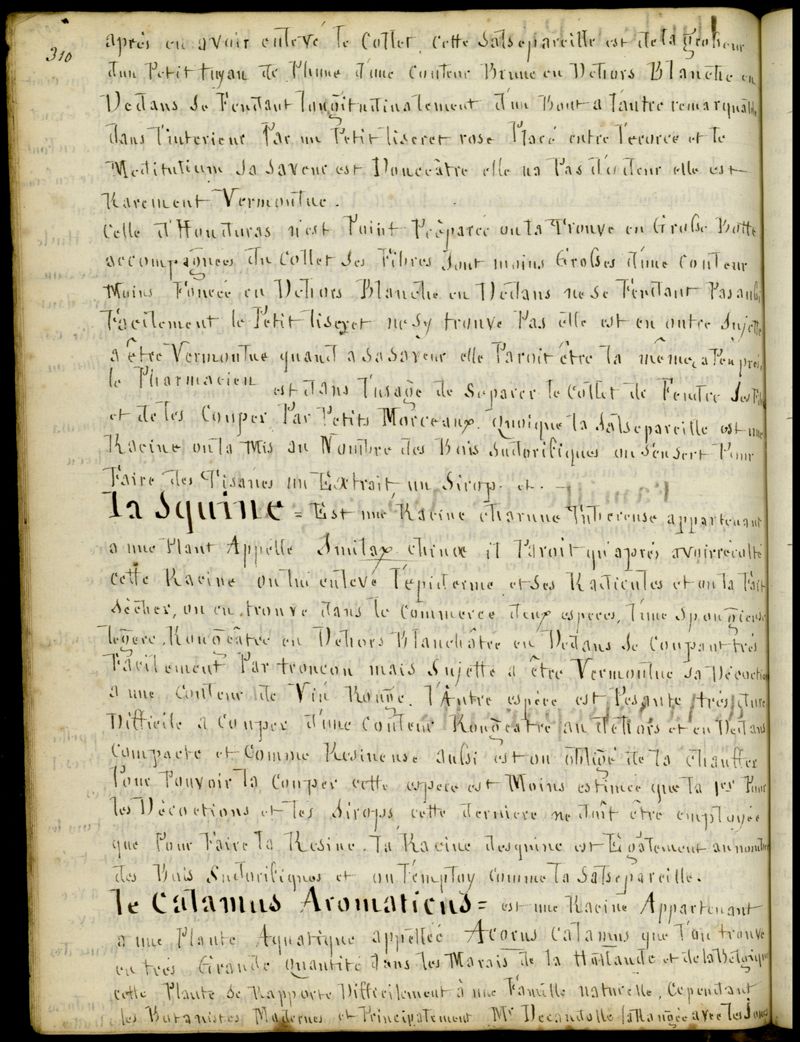 310
après en avoir enlevé le Collet. Cette Salsepareille est de la Grosseur
d'un Petit tuyau de Plume d'une Couleur Brune en Dehors Blanche en
Dedans Se Fendant longitudinalement d'un Bout a l'autre remarquable
dans l'interieur Par un Petit liseret rose Placé entre l'ecorce et le
Meditulium Sa Saveur est Douceâtre elle n'a Pas d'odeur elle est
Rarement Vermoulue.
Celle d'Honduras n'est Point Préparée on la Trouve en Grosse Botte
accompagnées du Collet Ses Fibres sont moins Grosses d'une Couleur
Moins Foncée en Dehors Blanche en Dedans ne Se Fendant Pas aussi
Facilement le Petit liseret ne S'y trouve Pas elle est en outre Sujette
a être Vermoulue quand a Sa Saveur elle Paroit être la même, a Peu près,
le Pharmacien est dans l'usage de Separer le Collet de Fendre Ses
et de les Couper Par Petits Morceaux. Quoique la Salsepareille est une
Racine on l'a Mis au Nombre des Bois Sudorifiques on s'en sert Pour
Faire des Tisanes un Extrait un Sirop. et. —
la Squine = Est une Racine charnue Tubereuse appartenant
a une Plant Appellé Smilax chinæ il Paroit qu'après avoir récolté
cette Racine on lui enlevé l'épiderme et Ses Radicules et on la Fait
Sécher, on en trouve dans le Commerce deux especes, l'une Spongieuse
legère, Rougeâtre en Dehors Blanchâtre en Dedans Se Coupant très
Facilement Par troncon mais Sujette a être Vermoulue Sa Décoction
a une Couleur de Vin Rouge. l'Autre espèce est Pesante, très dure
Difficile a Couper d'une Couleur Rougeâtre au dehors et en Dedans
Compacte et Comme Resineuse aussi est on obligé de la chauffer
Pour Pouvoir la Couper cette espece est Moins estimée que la 1re Pour
les Décoctions et les Sirops, cette derniere ne doit être employée
que Pour Faire la Resine. la Racine de squine est Egalement au nombre
des Bois Sudorifiques et on l'employ Comme la Salsepareille.
le Calamus Aromaticus = est une Racine Appartenant
a une Plante Aquatique appellée Acorus Calamus que l'on trouve
en très Grande Quantité dans les Marais de la Hollande et de la Belgique
cette Plante Se Rapporte Difficilement à une Famille naturelle, Cependant
les Botanistes Modernes et Principalement Mr Decandolle l'a Rangée avec les Joncs